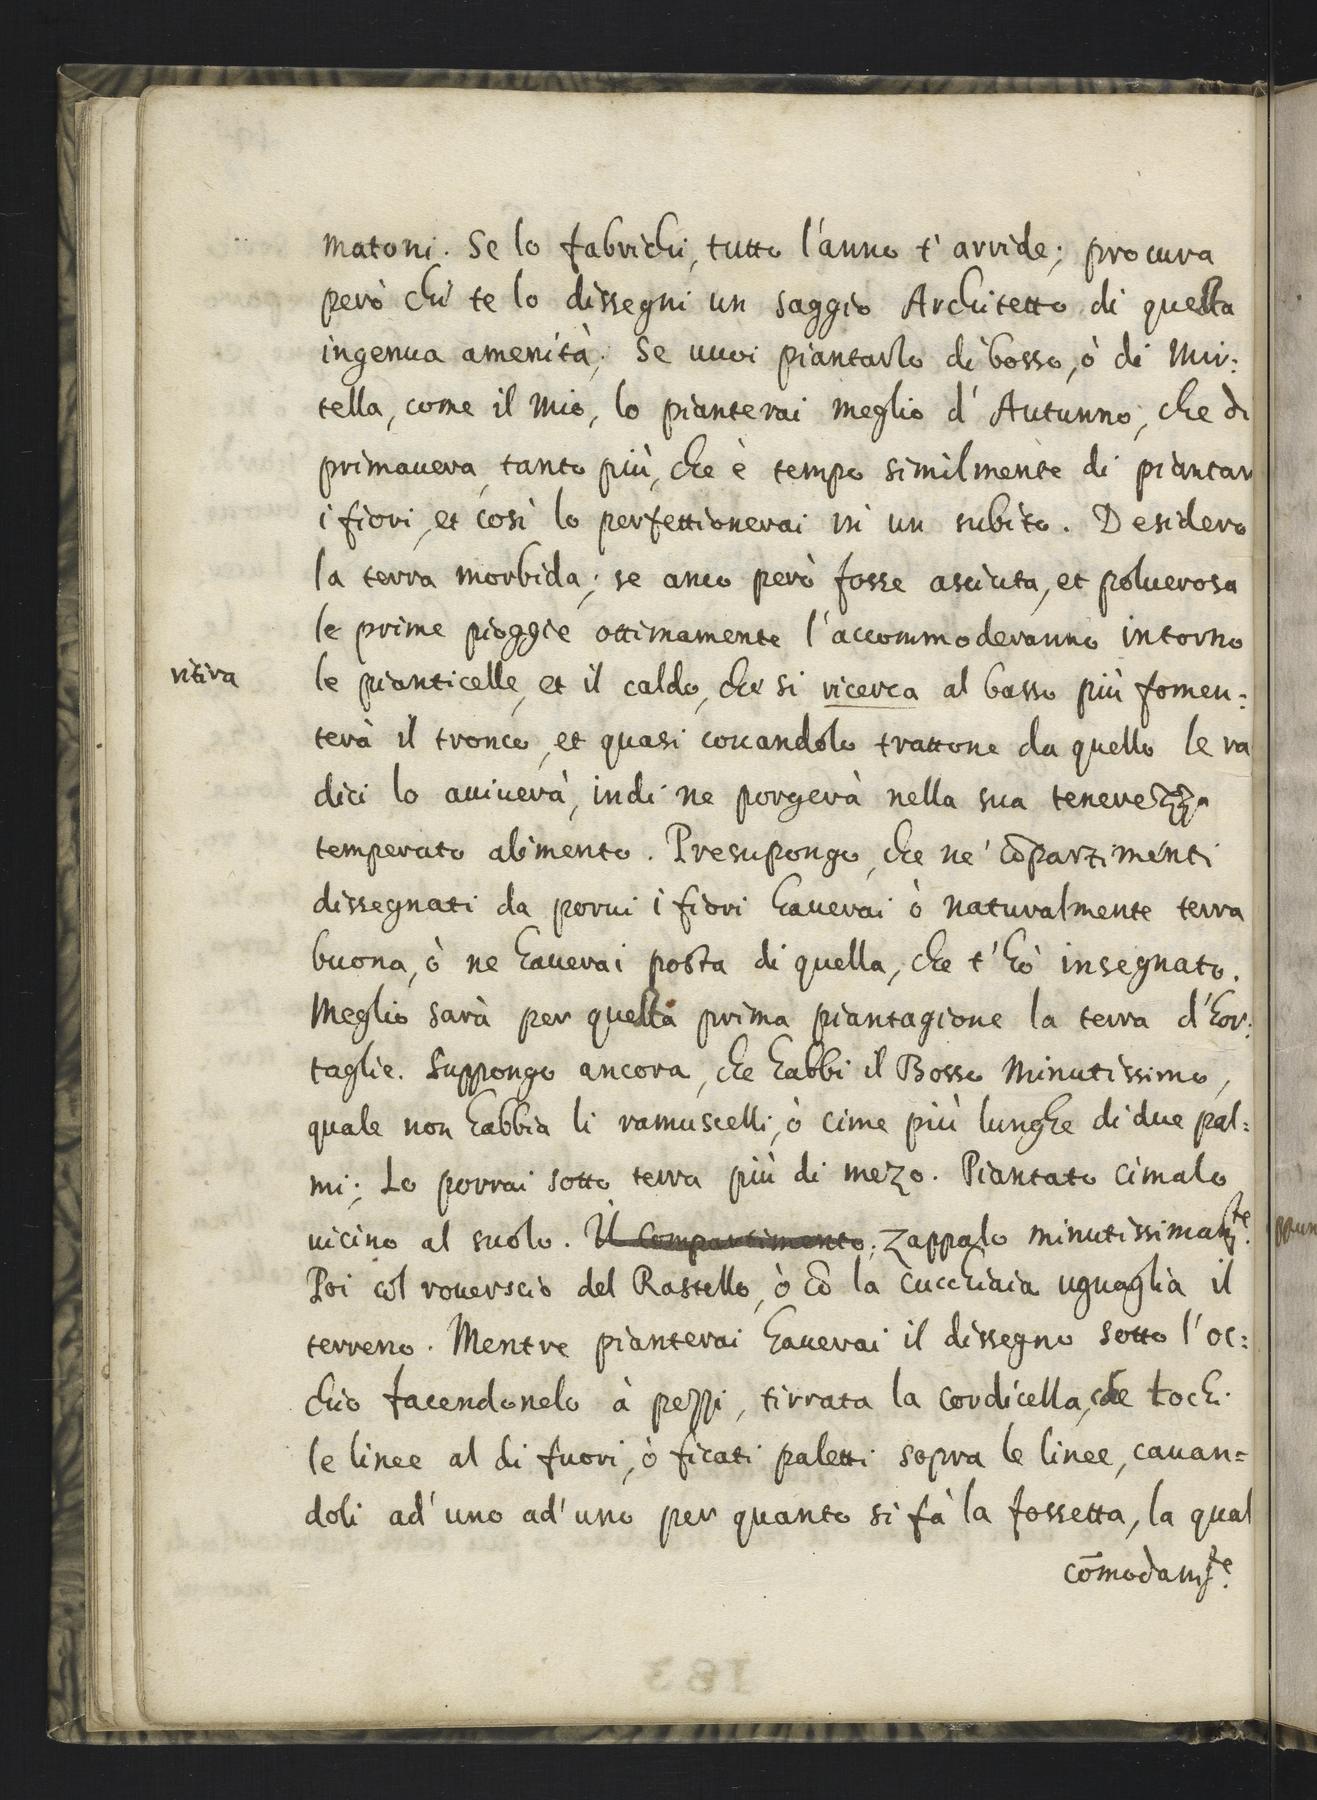 matoni. Se lo fabrichi, tutto l'anno t'arride; procura
però chi te lo dissegni un saggio Architetto di questa
ingenua amenità. Se vuoi piantarlo di bosso, ò di Mir:
tella, come il mio, lo pianterai meglio d'Autunno, che di
primauera, tanto più, che è tempo similmente di piantar
i fiori, et così lo perfettionerai in un subito. Desidero
la terra morbida; se anco però fosse asciuta, et poluerosa
le prime pioggie ottimamente l'accommoderanno intorno
ritira
le pianticelle, et il caldo, che si ricerca al basso più fomen:
terà il tronco, et quasi couandolo trattone da quello le ra
dici lo auiuerà, indi ne porgerà nella sua tenerezza
temperato alimento. Presupongo, che ne' cōpartimenti
dissegnati da porui i fiori hauerai ò naturalmente terra
buona, ò ne hauerai posta di quella, che t'hò insegnato.
Meglio sarà per questa prima piantagione la terra d'hor:
taglie. Suppongo ancora, che habbi il Bosso minutissimo,
quale non habbia li ramuscelli, ò cime più lunghe di due pal:
mi; Lo porrai sotto terra più di mezo. Piantato cimalo
uicino al suolo. Il Compartimento; zappalo minutissimam.te
Poi col rouerscio del Rastello, ò cō la cucchiaia uguaglia il
terreno. Mentre pianterai hauerai il dissegno sotto l'oc:
chio facendonelo à pezzi, tirrata la cordicella, che tochi
le linee al di fuori, ò ficati paletti sopra le linee, cauan=
doli ad'uno ad'uno per quanto si fà la fossetta, la qual
cōmodam.te